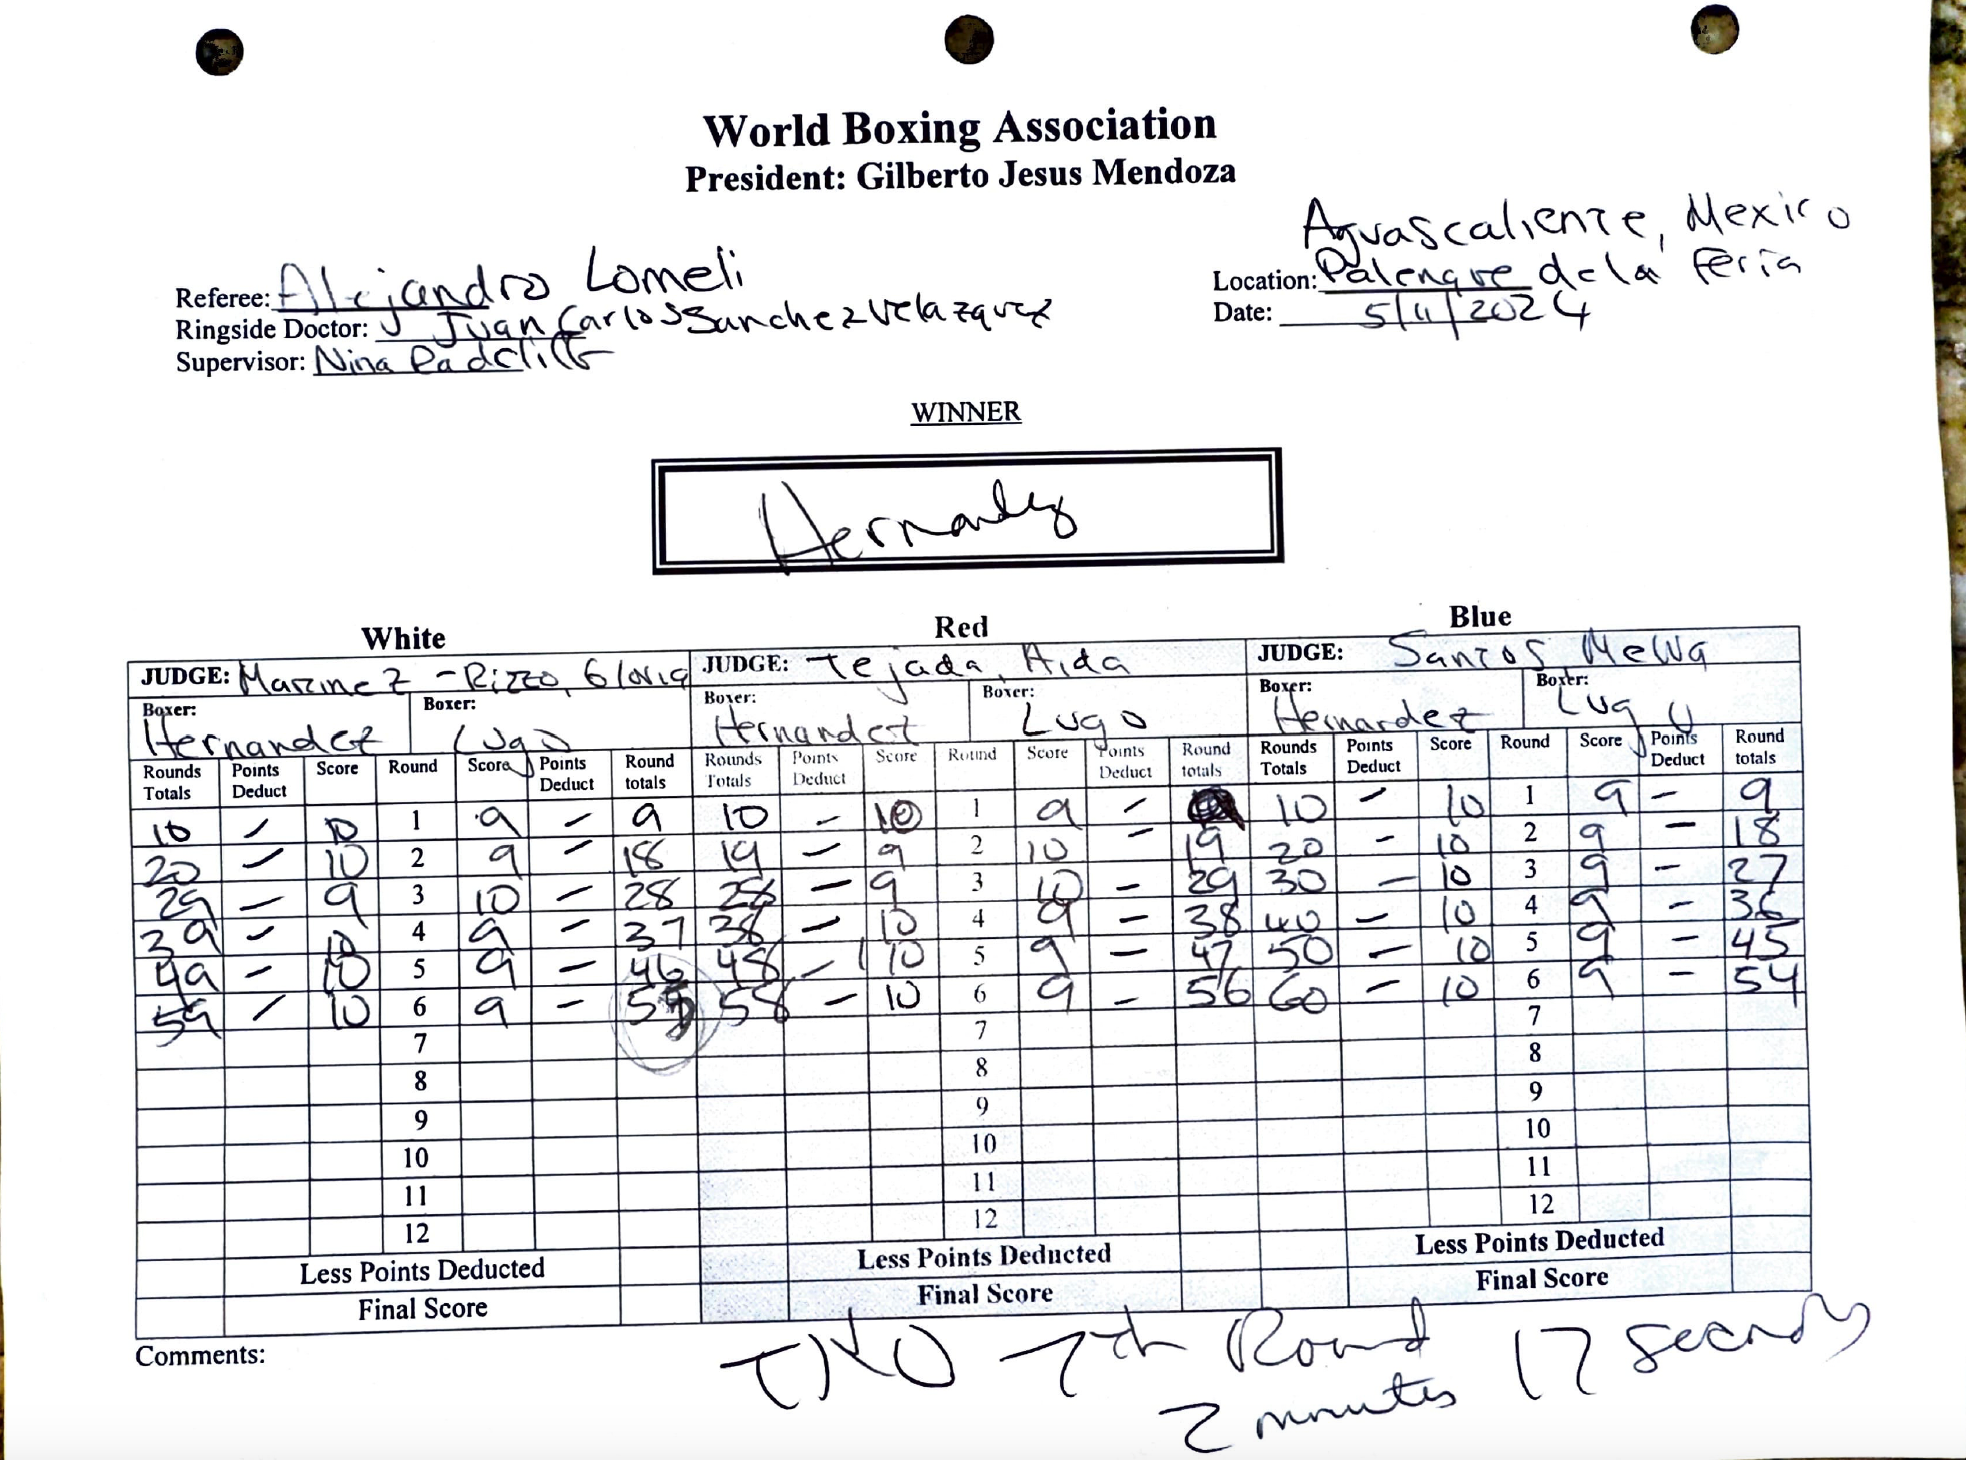 World Boxing Association
President: Gilberto Jesus Mendoza
Aguascaliente, Mexico
Referee: Alejandro Lomeli
Location: Palenque de la Feria
Ringside Doctor: Juan Carlos Sanchez Velazquez
Date: 5/11/2024
Supervisor: Nina Radcliff
WINNER
Hernandez
White Red Blue
JUDGE: Martinez - Rizzo, Gloria JUDGE: Tejada, Aida JUDGE: Santos, Melva
Boxer: Hernandez Boxer: Lugo Boxer: Hernandez Boxer: Lugo Boxer: Hernandez Boxer: Lugo
Rounds Totals Points Deduct Score Round Score Points Deduct Round totals Rounds Totals Points Deduct Score Round Score Points Deduct Round totals Rounds Totals Points Deduct Score Round Score Points Deduct Round totals
10 - 10 1 9 - 9 10 - 10 1 9 - 10 - 10 1 9 - 9
20 - 10 2 9 - 18 19 - 9 2 10 - 19 20 - 10 2 9 - 18
29 - 9 3 10 - 28 28 - 9 3 10 - 29 30 - 10 3 9 - 27
39 - 10 4 9 - 37 38 - 10 4 9 - 38 40 - 10 4 9 - 36
49 - 10 5 9 - 46 48 - 10 5 9 - 47 50 - 10 5 9 - 45
59 - 10 6 9 - 58 - 10 6 9 - 56 60 - 10 6 9 - 54
7 7 7
8 8 8
9 9 9
10 10 10
11 11 11
12 12 12
Less Points Deducted Less Points Deducted Less Points Deducted
Final Score Final Score Final Score
Comments: TKO 7th Round 17 seconds
2 minutes